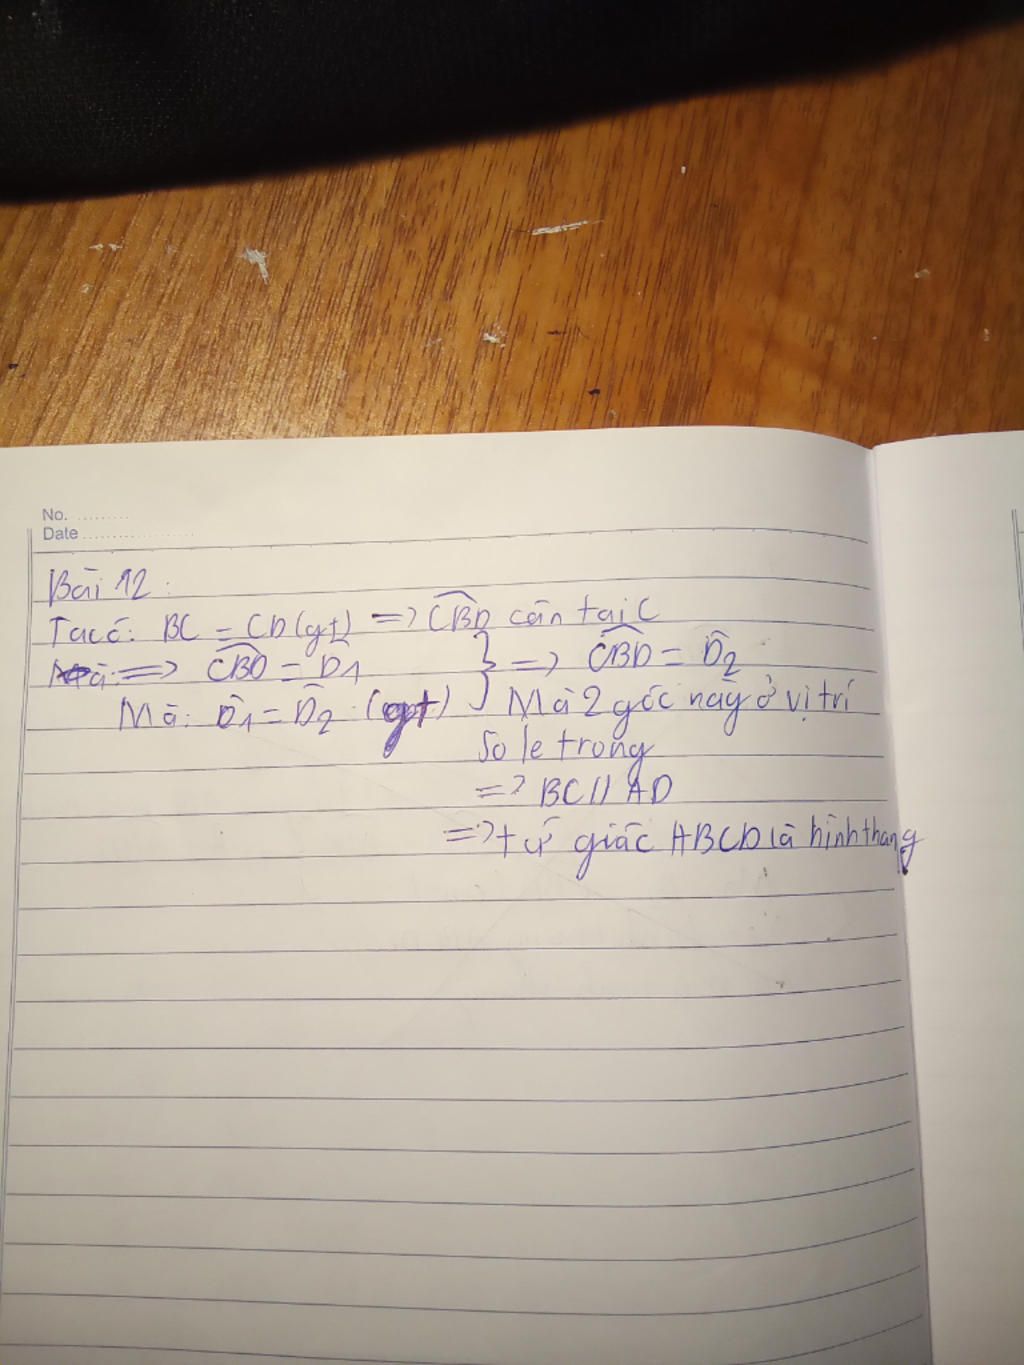 No. ..........
Date ....................
Bài 12:
Ta có: BC = CD (gt) => \widehat{CBD} cân tại C
=> \widehat{CBD} = \widehat{D}1 } => \widehat{CBD} = \widehat{D}2
Mà: \widehat{D}1 = \widehat{D}2 (gt) Mà 2 góc này ở vị trí
so le trong
=> BC // AD
=> tứ giác ABCD là hình thang